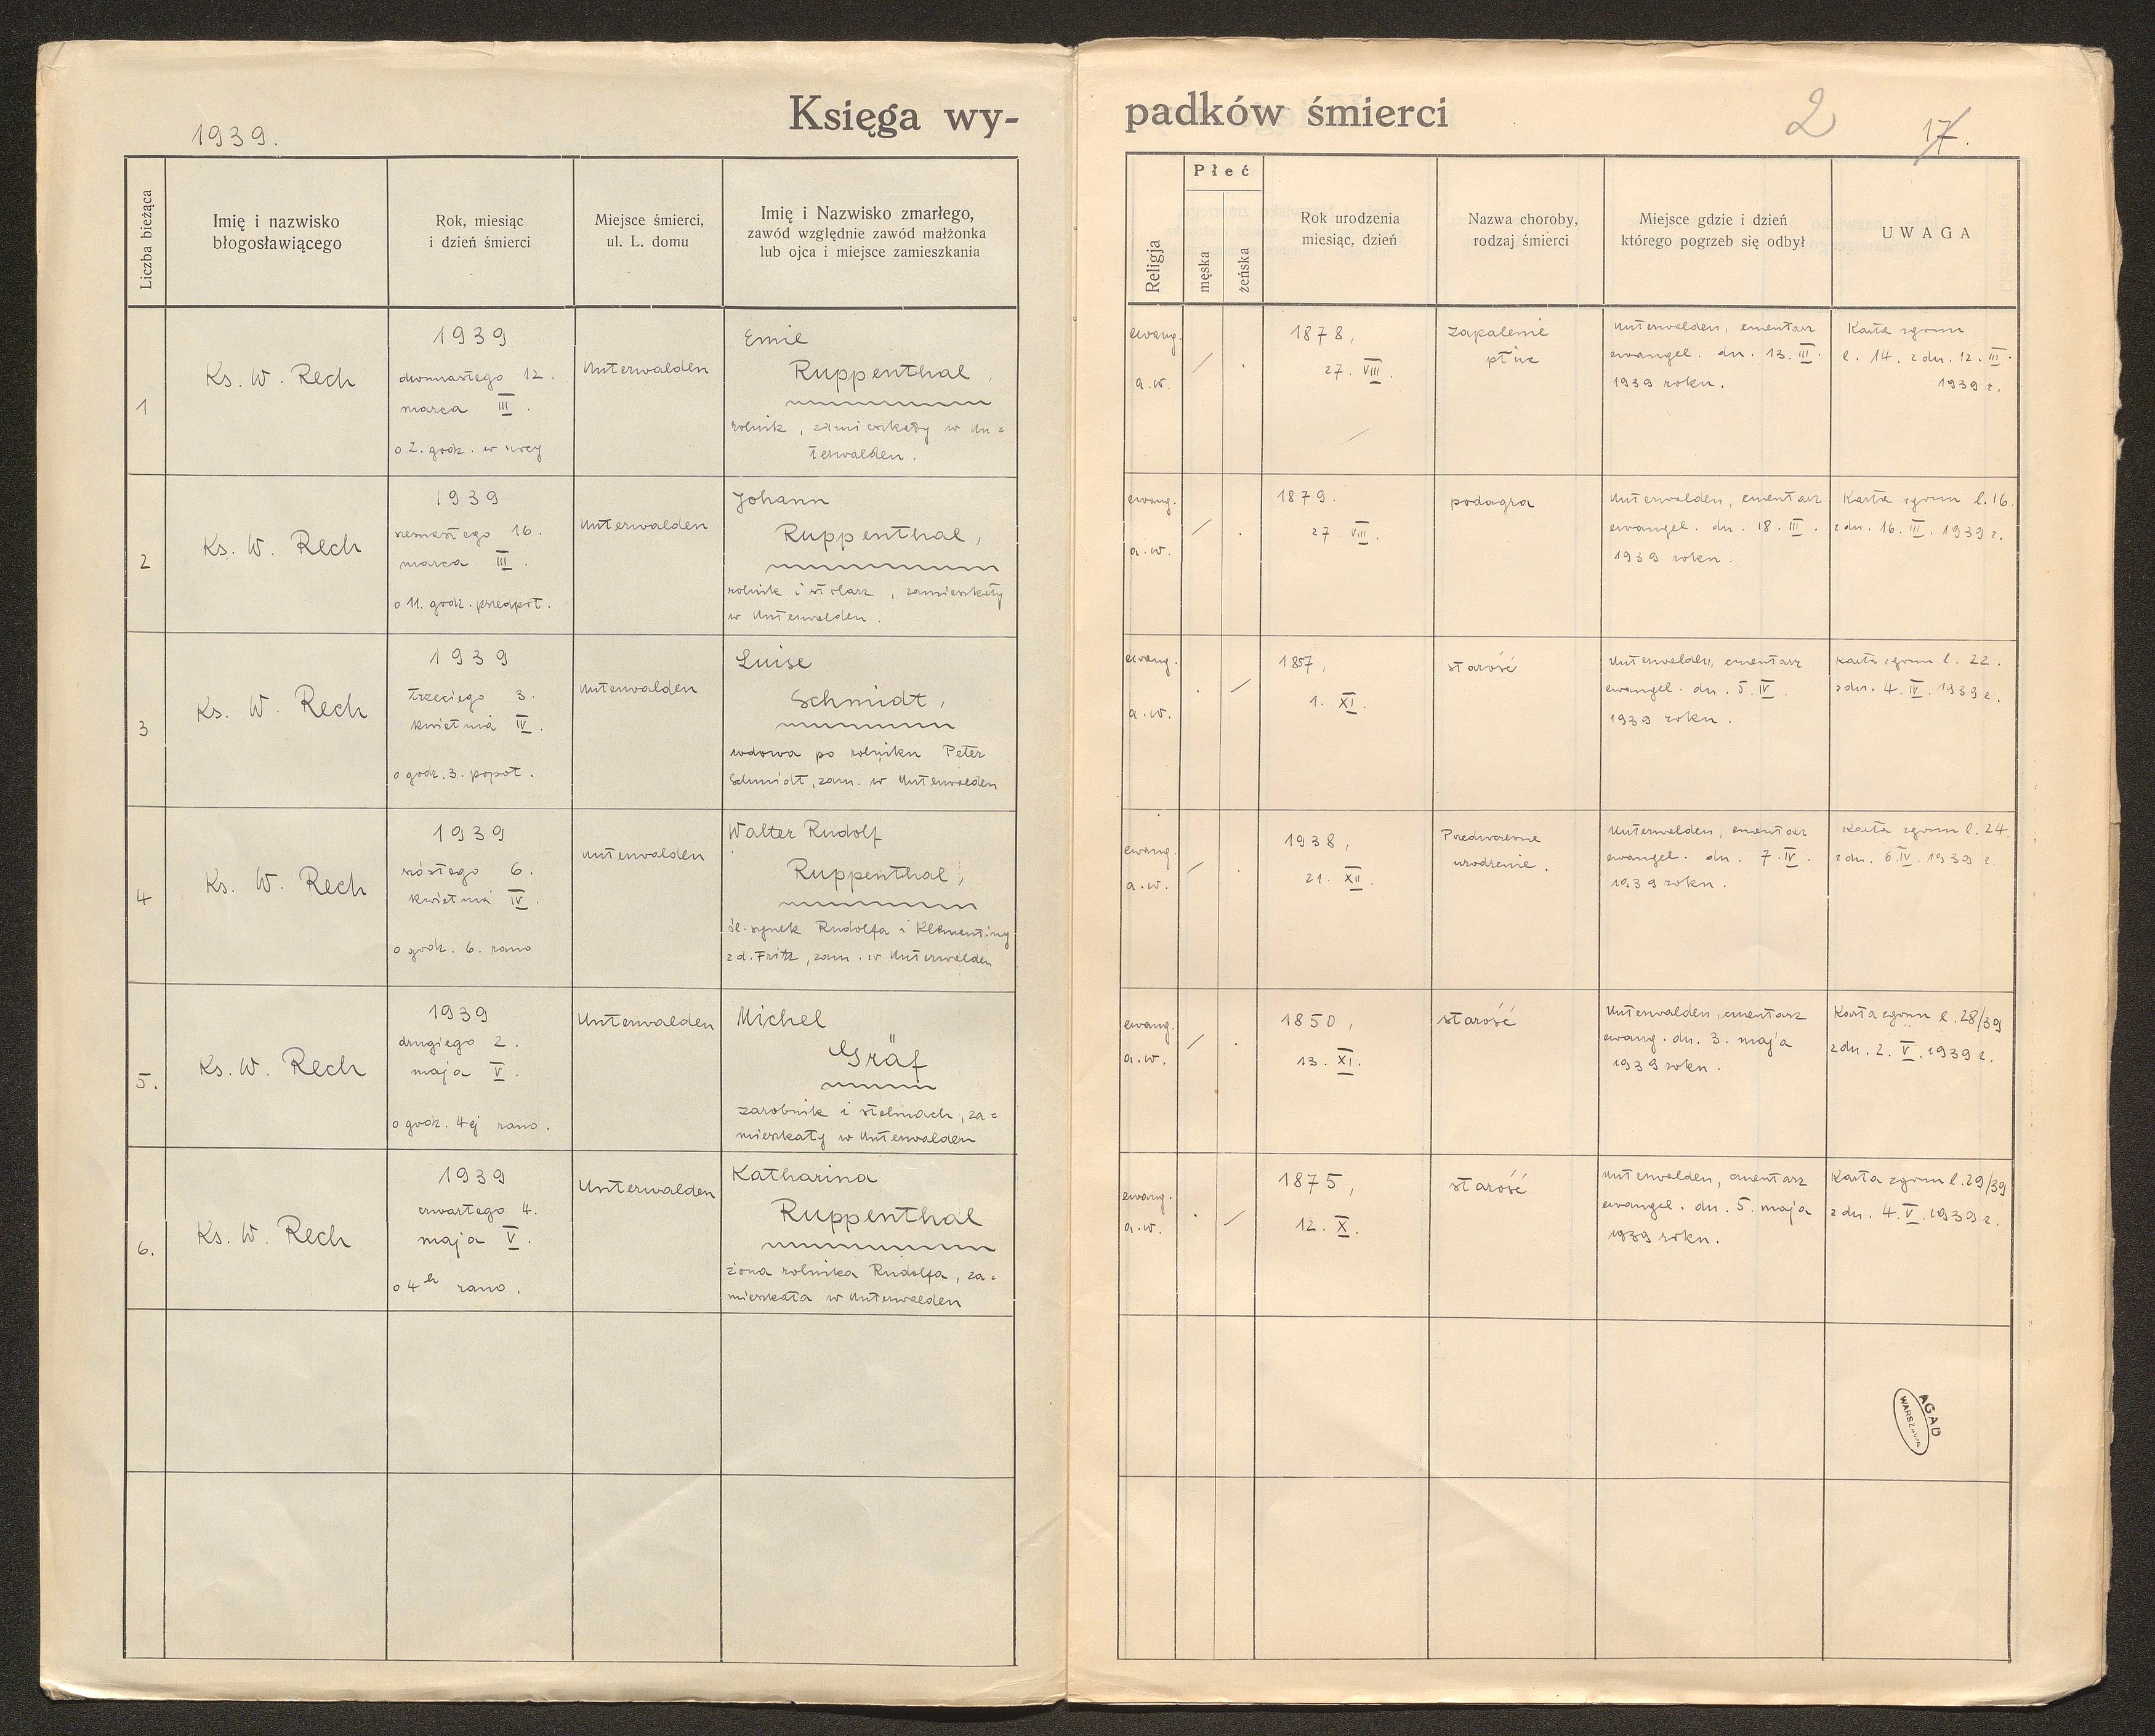 1939.
Księga wy-
padków śmierci
2
17.
Liczba bieżąca
Imię i nazwisko
błogosławiącego
Rok, miesiąc
i dzień śmierci
Miejsce śmierci,
ul. L. domu
Imię i Nazwisko zmarłego,
zawód względnie zawód małżonka
lub ojca i miejsce zamieszkania
Religja
Płeć
męska
żeńska
Rok urodzenia
miesiąc, dzień
Nazwa choroby,
rodzaj śmierci
Miejsce gdzie i dzień
którego pogrzeb się odbył
UWAGA
1
Ks. W. Rech
1939
dwunastego 12.
marca III.
o 2. godz. w nocy
Unterwalden
Emil
Ruppenthal,
rolnik, zamieszkały w Un=
terwalden.
ewang.
a.w.
/
.
1878,
27. VIII.
zapalenie
płuc
Unterwalden, cmentarz
ewangel. dn. 13. III.
1939 roku.
Karta zgonu
l. 14. z dn. 12. III.
1939 r.
2
Ks. W. Rech
1939
szesnastego 16.
marca III.
o 11. godz. przedpoł.
Unterwalden
Johann
Ruppenthal,
rolnik i stolarz, zamieszkały
w Unterwalden.
ewang.
a.w.
/
.
1879.
27 VIII.
podagra
Unterwalden, cmentarz
ewangel. dn. 18. III.
1939 roku.
Karta zgonu l. 16.
z dn. 16. III. 1939 r.
3
Ks. W. Rech
1939
trzeciego 3.
kwietnia IV.
o godz. 3. popoł.
Unterwalden
Luise
Schmidt,
wdowa po rolniku Peter
Schmidt, zam. w Unterwalden
ewang.
a.w.
.
/
1857,
1. XI.
starość
Unterwalden, cmentarz
ewangel. dn. 5. IV.
1939 roku.
Karta zgonu l. 22.
z dn. 4. IV. 1939 r.
4
Ks. W. Rech
1939
szóstego 6.
kwietnia IV.
o godz. 6. rano
Unterwalden
Walter Rudolf
Ruppenthal,
śl. synek Rudolfa i Klementiny
z d. Fritz, zam. w Unterwalden
ewang.
a.w.
/
.
1938,
21. XII.
Przedwczesne
urodzenie.
Unterwalden, cmentarz
ewangel. dn. 7. IV.
1939 roku.
Karta zgonu l. 24.
z dn. 6 IV. 1939 r.
5.
Ks. W. Rech
1939
drugiego 2.
maja V.
o godz. 4ej rano.
Unterwalden
Michel
Gräf
zarobnik i stelmach, za=
mieszkały w Unterwalden
ewang.
a.w.
/
.
1850,
13. XI.
starość
Unterwalden, cmentarz
ewang. dn. 3. maja
1939 roku.
Karta zgonu l. 28/39
z dn. 2. V. 1939 r.
6.
Ks. W. Rech
1939
czwartego 4.
maja V.
o 4h rano.
Unterwalden
Katharina
Ruppenthal
żona rolnika Rudolfa, za=
mieszkała w Unterwalden
ewang.
a.w.
.
/
1875,
12. X.
starość
Unterwalden, cmentarz
ewangel. dn. 5. maja
1939 roku.
Karta zgonu l. 29/39
z dn. 4. V. 1939 r.
AGAD
WARSZAWA